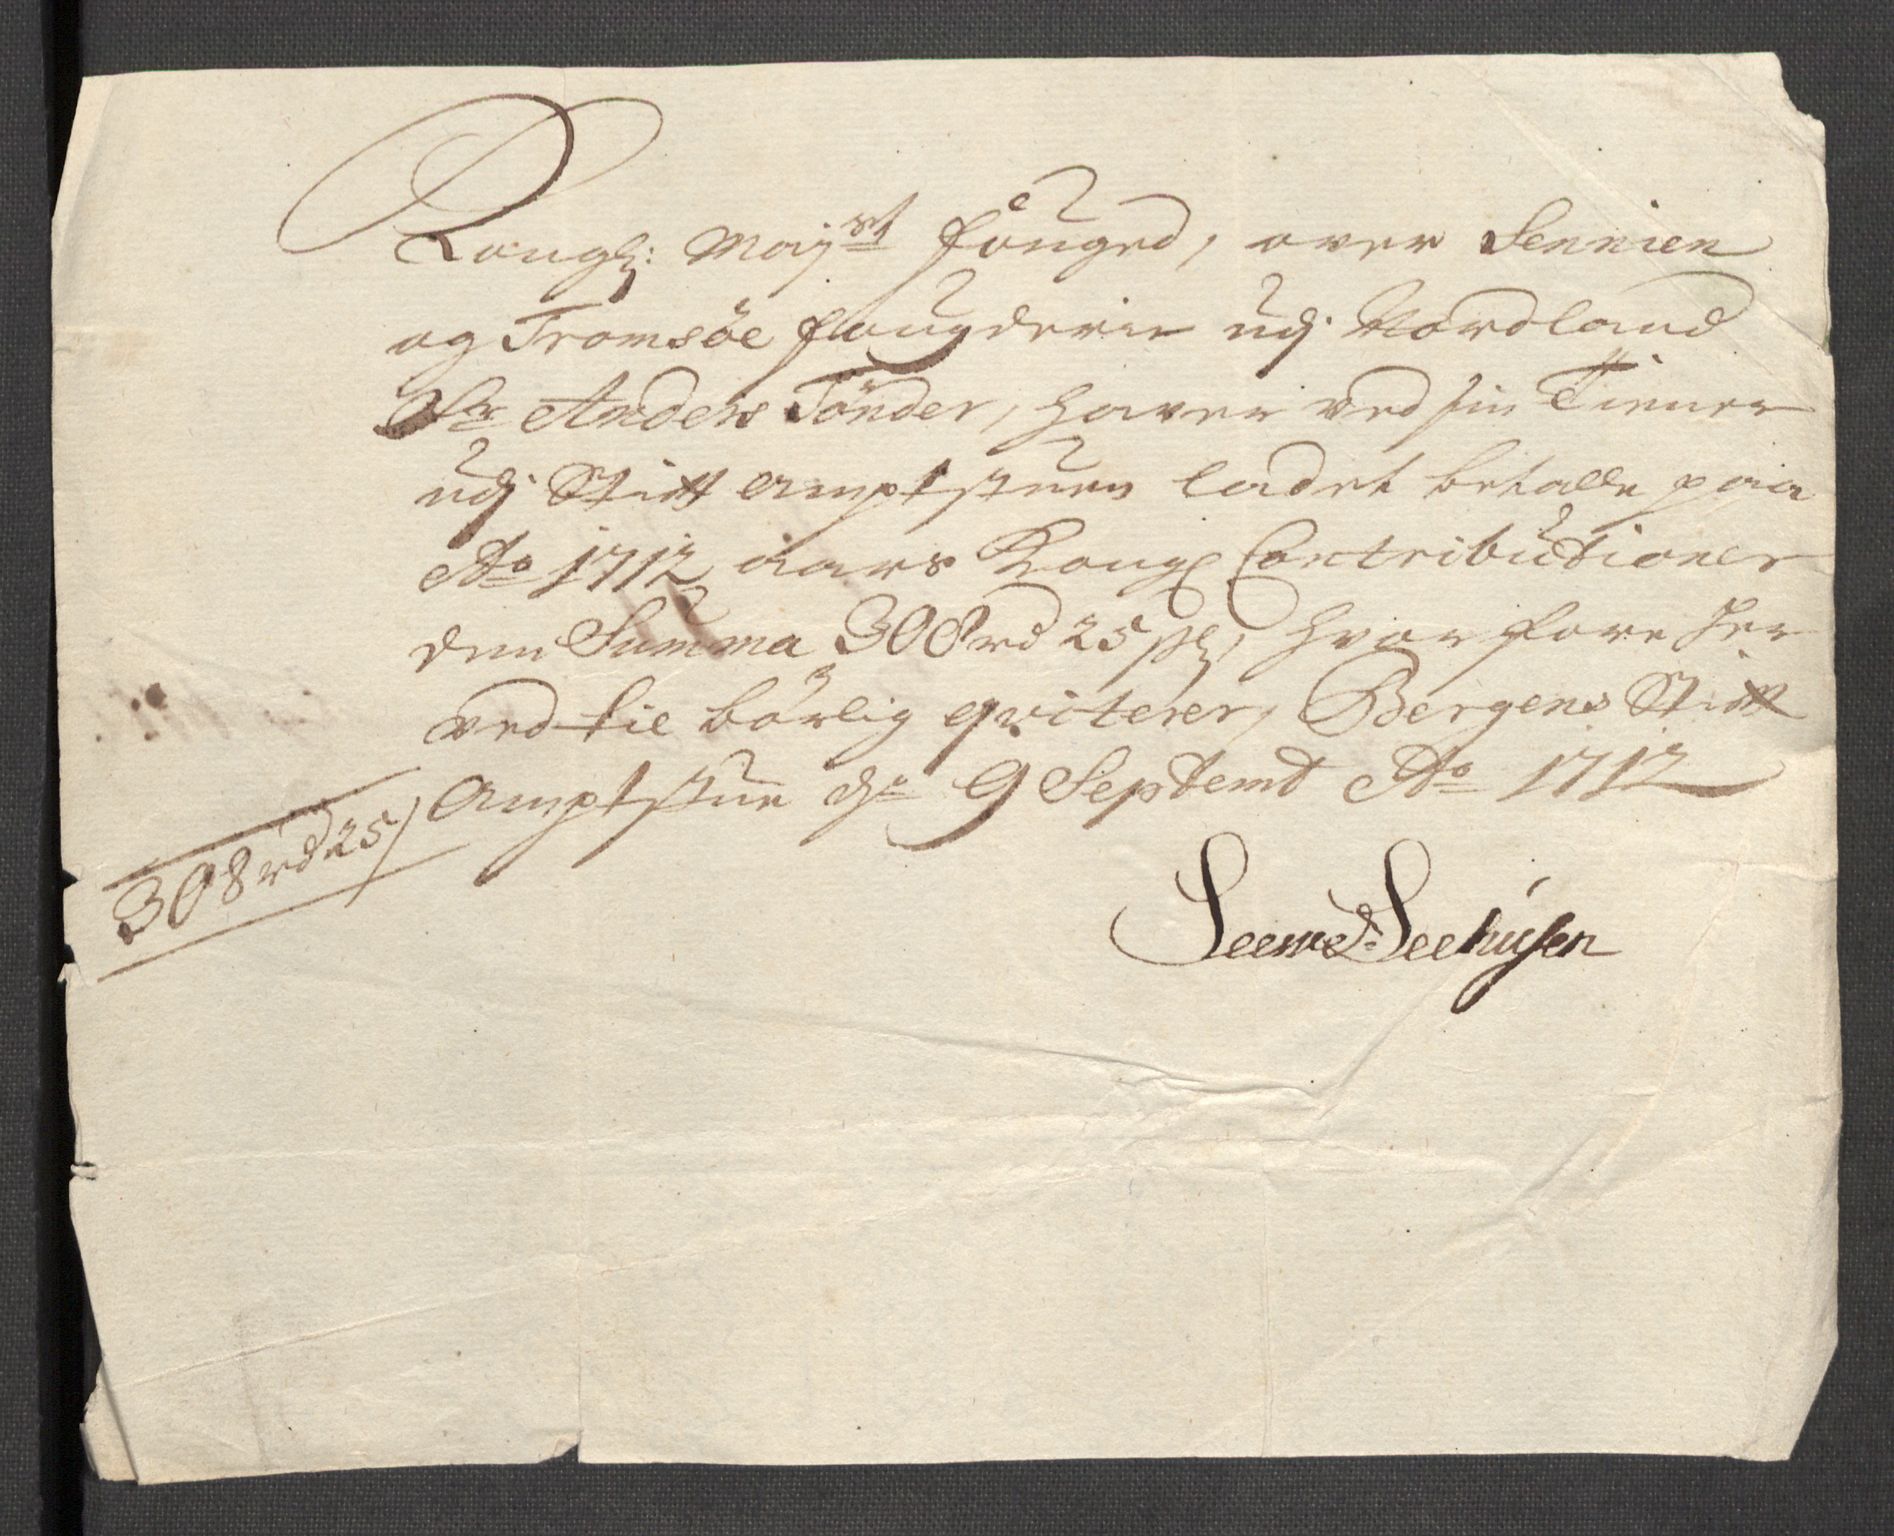 Kongl: Mayst fouged, over Sennien
og Tromsöe fougderie udj Nordland
Sr Anders Tönder, haver ved sin Tiener
udj Stift amptstuen ladet betalle paa
Ao 1712 aars Kongl Contributioner
den Summa 308 rd 25 s, hvor fore her
ved til börlig qviterer, Bergens Stift
Amptstue dn 9 Septemb Ao 1712
308 rd 25
Seehusen